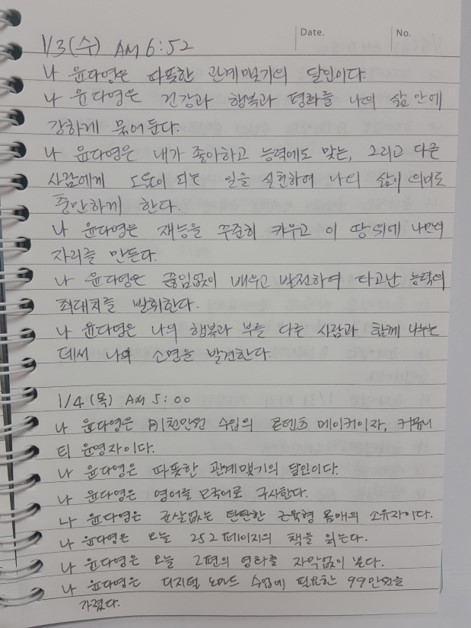 Date.
No.
1/3(수) AM 6:52
나 윤다영은 따뜻한 관계맺기의 달인이다
나 윤다영은 건강과 행복과 평화를 나의 삶 안에
강하게 묶어둔다.
나 윤다영은 내가 좋아하고 능력에도 맞는, 그리고 다른
사람에게 도움이 되는 일을 실천하여 나의 삶이
충만하게 한다.
나 윤다영은 재능을 꾸준히 키우고 이 땅 위에 나만의
자리를 만든다.
나 윤다영은 끊임없이 배우고 발전하여 타고난 능력의
최대치를 발휘한다.
나 윤다영은 나의 행복과 부를 다른 사람과 함께 나누는
데서 나의 소명을 발견한다.
1/4(목) AM 5:00
나 윤다영은 월천만원 수입의 콘텐츠 메이커이자, 커뮤니
티 운영자이다.
나 윤다영은 따뜻한 관계맺기의 달인이다.
나 윤다영은 영어를 모국어로 구사한다.
나 윤다영은 군살없는 탄탄한 근육형 몸매의 소유자이다.
나 윤다영은 오늘 252페이지의 책을 읽는다.
나 윤다영은 오늘 2편의 영화를 자막없이 본다.
나 윤다영은 디지털 노마드 수업에 필요한 99만원을
가졌다.